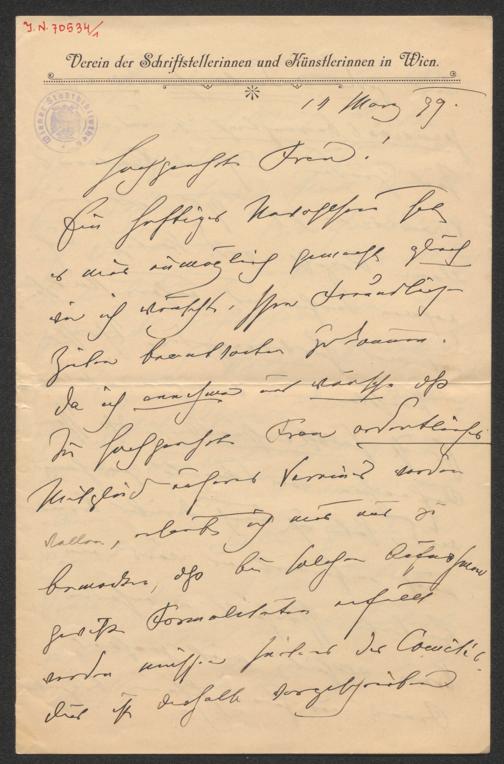 J.N. 70534/1
Verein der Schriftstellerinnen und Künstlerinnen in Wien.
Wiener Stadtbibliothek
11 März 99.
Hochgeehrte Frau!
Ein heftiges Unwohlsein hat
es mir unmöglich gemacht gleich
wie ich wünschte, Ihre freundlichen
Zeilen beantworten zu können.
Da ich annehme und wünsche daß
Sie hochgeehrte Frau ordentliches
Mitglied unseres Vereines werden
wollen, erlaube ich mir nur zu
bemerken, daß bei solchen
gewisse Formalitäten erfüllt
werden müssen seitens des Comités.
dies ist deshalb vorgeschrieben